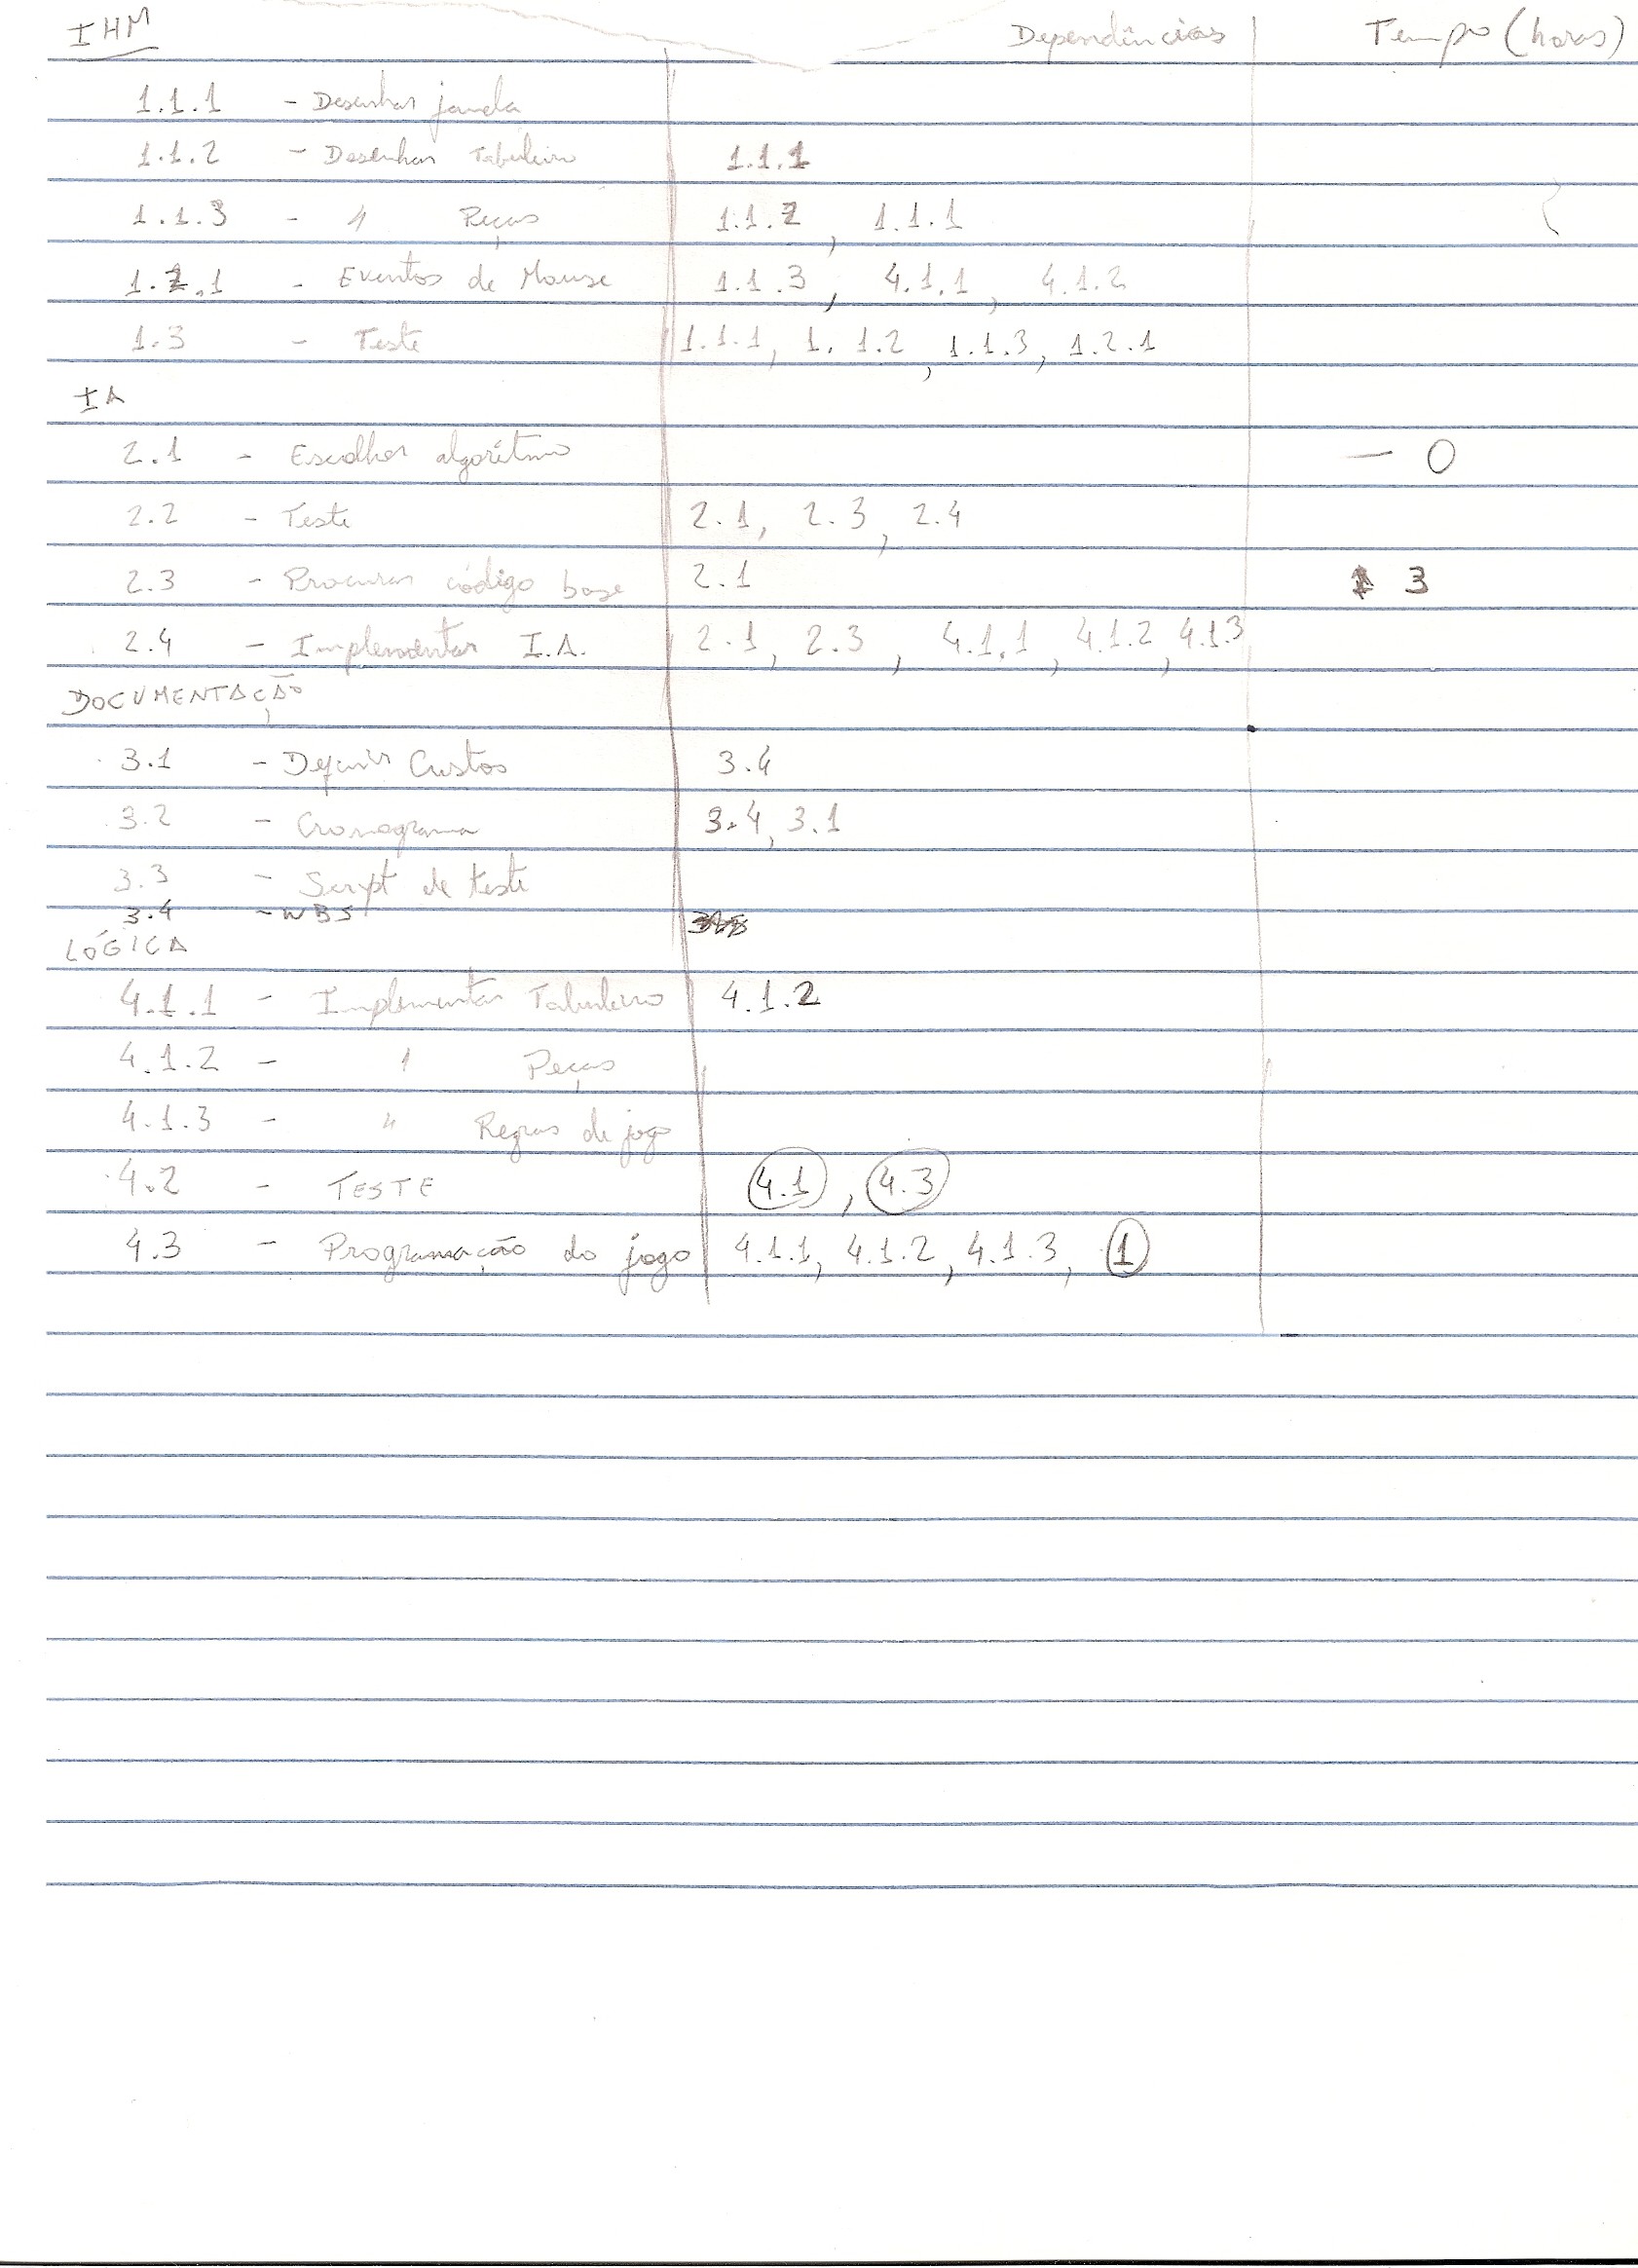 IHM Dependências Tempo (horas)
1.1.1 - Desenhar janela
1.1.2 - Desenhar Tabuleiro 1.1.1
1.1.3 - " Peças 1.1.2, 1.1.1
1.2.1 - Eventos de Mouse 1.1.3, 4.1.1, 4.1.2
1.3 - Teste 1.1.1, 1.1.2, 1.1.3, 1.2.1
IA
2.1 - Escolher algorítmo — 0
2.2 - Teste 2.1, 2.3, 2.4
2.3 - Procurar código base 2.1 3
2.4 - Implementar I.A. 2.1, 2.3, 4.1.1, 4.1.2, 4.1.3
DOCUMENTAÇÃO
3.1 - Definir Custos 3.4
3.2 - Cronograma 3.4, 3.1
3.3 - Script de teste
3.4 - WBS
LÓGICA
4.1.1 - Implementar Tabuleiro 4.1.2
4.1.2 - " Peças
4.1.3 - " Regras de jogo
4.2 - TESTE 4.1, 4.3
4.3 - Programação do jogo 4.1.1, 4.1.2, 4.1.3, 1